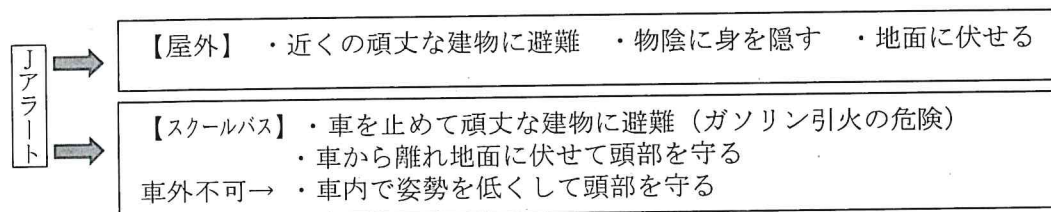 Jアラート
【屋外】 ・近くの頑丈な建物に避難 ・物陰に身を隠す ・地面に伏せる
【スクールバス】・車を止めて頑丈な建物に避難（ガソリン引火の危険）
・車から離れ地面に伏せて頭部を守る
車外不可→ ・車内で姿勢を低くして頭部を守る